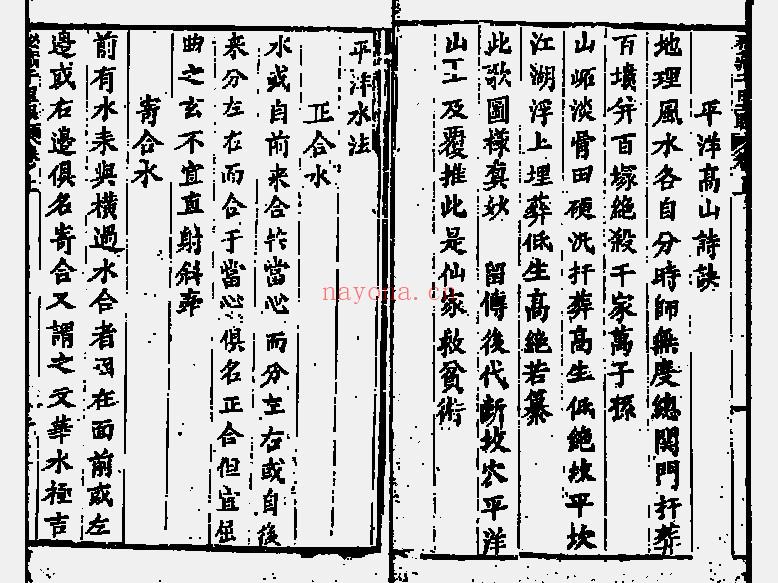 平洋髙山詩訣
地理風水各自分時師無度總関門扞葬
百墳分百塚絶殺千家萬子孫
山峄淡骨田硬氿扞葬髙生低絶坟平坎
江湖浮上埋葬低生髙絶若纂
此歌圖樣真妙 留傳後代断坟穴平洋
山工及覆推此是仙家救貧術
平洋水法
正合水
水或自前来合扵當心而分左右或自後
来分左右而合于當心俱名正合但宜屈
曲之玄不宜直射斜牵
寄合水
前有水耒與橫過水合者因在面前或左
邉或右邉俱名寄合又謂之文華水極吉
nayona.cn